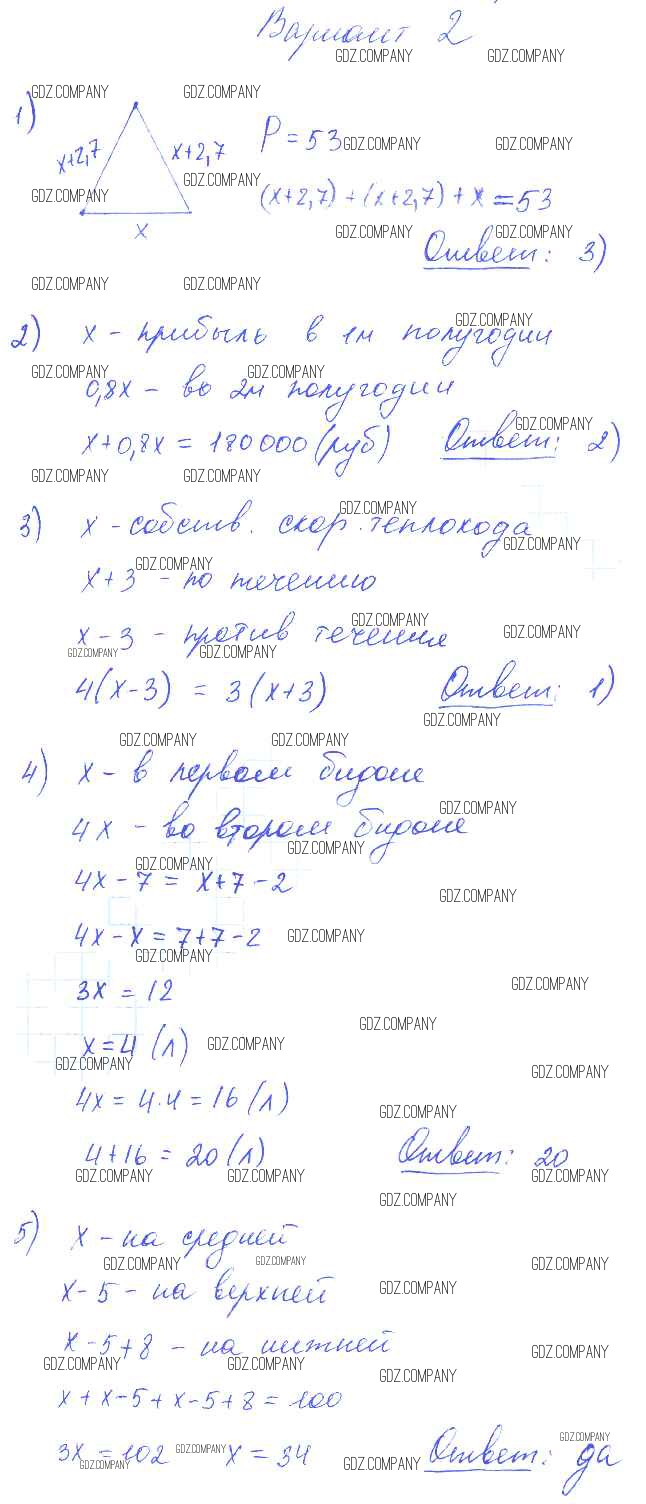 Вариант 2
GDZ.COMPANY GDZ.COMPANY
GDZ.COMPANY GDZ.COMPANY
1) x+2,7 x+2,7 P = 53
GDZ.COMPANY GDZ.COMPANY
GDZ.COMPANY GDZ.COMPANY
(x+2,7) + (x+2,7) + x = 53
x
GDZ.COMPANY GDZ.COMPANY
Ответ: 3)
GDZ.COMPANY GDZ.COMPANY
GDZ.COMPANY
2) x - прибыль в 1м полугодии
GDZ.COMPANY GDZ.COMPANY
0,8x - во 2м полугодии
GDZ.COMPANY
x+0,8x = 180000 (руб) Ответ: 2)
GDZ.COMPANY GDZ.COMPANY
GDZ.COMPANY
3) x - собств. скор. теплохода
GDZ.COMPANY
GDZ.COMPANY
x+3 - по течению
GDZ.COMPANY GDZ.COMPANY
x-3 - против течения
GDZ.COMPANY GDZ.COMPANY
4(x-3) = 3(x+3) Ответ: 1)
GDZ.COMPANY
GDZ.COMPANY GDZ.COMPANY
4) x - в первом бидоне
GDZ.COMPANY
4x - во втором бидоне
GDZ.COMPANY
GDZ.COMPANY
4x-7 = x+7-2
GDZ.COMPANY
4x-x=7+7-2 GDZ.COMPANY
GDZ.COMPANY
3x = 12 GDZ.COMPANY
GDZ.COMPANY
x=4 (л) GDZ.COMPANY
GDZ.COMPANY GDZ.COMPANY
4x = 4·4 = 16 (л) GDZ.COMPANY
4+16 = 20 (л) Ответ: 20
GDZ.COMPANY GDZ.COMPANY GDZ.COMPANY
GDZ.COMPANY
5) x - на средней
GDZ.COMPANY GDZ.COMPANY GDZ.COMPANY
x-5 - на верхней GDZ.COMPANY
x-5+8 - на нижней GDZ.COMPANY
GDZ.COMPANY GDZ.COMPANY GDZ.COMPANY
x+x-5+x-5+8 = 100
3x = 102 GDZ.COMPANY x = 34 Ответ: да
GDZ.COMPANY GDZ.COMPANY GDZ.COMPANY